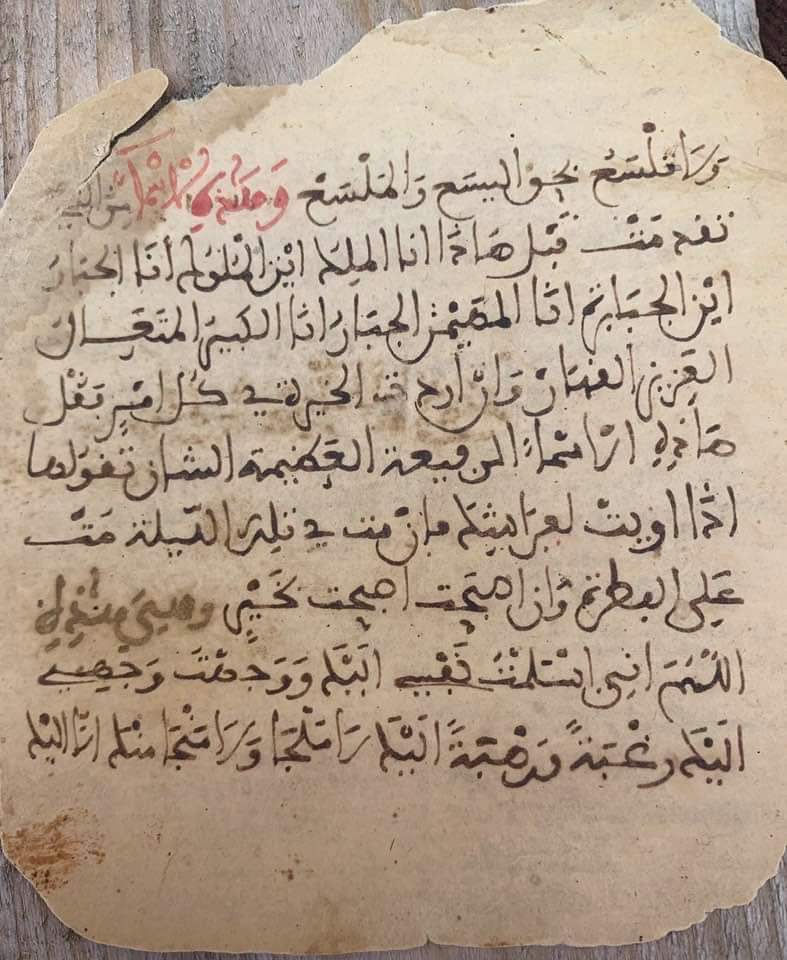 وَلَا مَلْسَعُ بحق اليسع وَالْمَلْسَعْ وَهَذِهِ الاسْمَاءُ الَّتِي
تقدمَتْ قَبْل هَاذَا انا الملِك ابْن الْمُلُوك أنَا الجَبَّارُ
ابْن الجَبَابِرَة انَا المهَيْمِن الجبَارُ انَا الكَبِيرُ المتَعَال
العَزِيز الفهار وَانْ أردت الخيرة في كُل امْرٍ بَقُل
هَاذِهِ الاسْمَاءُ الرفيعة العَظيمة الشان تَقولها
اذَا اويتْ لِفِرَاشِكَ فإنْ مت في تلك الليلة مَتّ
عَلَى الفطرة وَان اصْبَحت اصبحت بخَيْرٍ وهيَ هَذِهِ
اللهُمَ انِي اسْلمْتُ نَفْسِي الَيْك وَوَجهْت وَجهِي
الَيْك رغْبَةً وَرَهْبَةً الَيْكَ لَا مَلْجَا وَلَا مَنْجَا مِنْك الَّا الَيْك